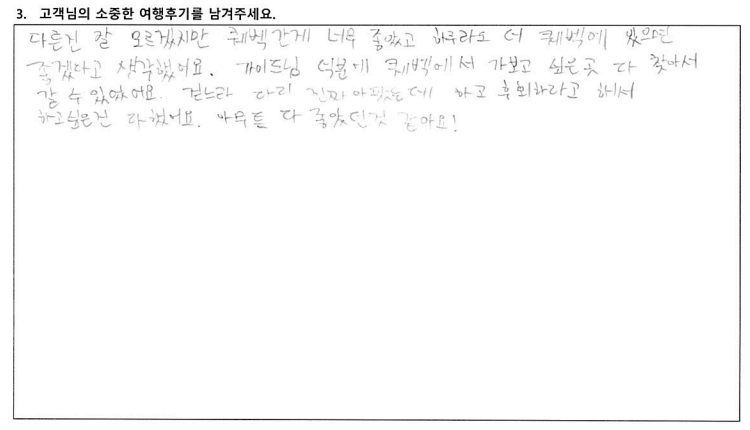 3. 고객님의 소중한 여행후기를 남겨주세요.
다른건 잘 모르겠지만 퀘벡간게 너무 좋았고 하루라도 더 퀘벡에 있으면
좋겠다고 생각했어요. 가이드님 덕분에 퀘벡에서 가보고 싶은곳 다 찾아서
갈 수 있었어요. 걷느라 다리 진짜 아팠는데 하고 후회하라고 해서
하고싶은건 다했어요. 아무튼 다 좋았던것 같아요!